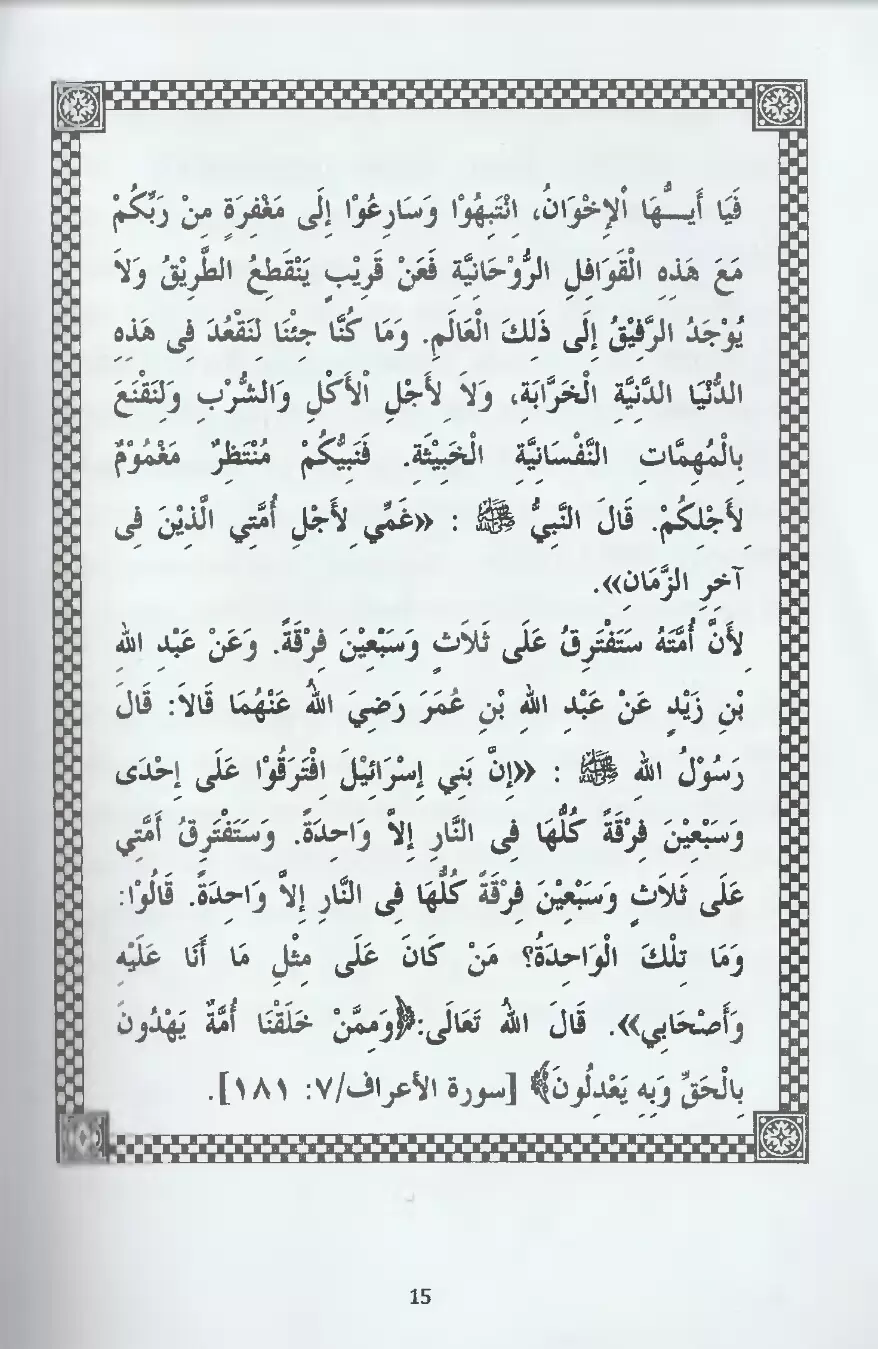 فَيَا أَيـــُّهَا اْلإِخْوَانُ، انْتَبِهُوْا وَسَارِعُوْا إِلَى مَغْفِرَةٍ مِنْ رَبِّكُمْ
مَعَ هَذِهِ الْقَوَافِلِ الرُّوْحَانِيَّةِ فَعَنْ قَرِيْبٍ يَنْقَطِعُ الطَّرِيْقُ وَلاَ
يُوْجَدُ الرَّفِيْقُ إِلَى ذَلِكَ الْعَالَمِ. وَمَا كُنَّا جِئْنَا لِنَقْعُدَ فِى هَذِهِ
الدُّنْيَا الدَّنِيَّةِ الْخَرَّابَةِ، وَلاَ لِأَجْلِ اْلأَكْلِ وَالشُّرْبِ وَلِنَقْنَعَ
بِالْمُهِمَّاتِ النَّفْسَانِيَّةِ الْخَبِيْثَةِ. فَنَبِيُّكُمْ مُنْتَظِرٌ مَغْمُوْمٌ
لِأَجْلِكُمْ. قَالَ النَّبِيُّ ﷺ : «غَمِّي لِأَجْلِ أُمَّتِي الَّذِيْنَ فِى
آخِرِ الزَّمَانِ».
لِأَنَّ أُمَّتَهُ سَتَفْتَرِقُ عَلَى ثَلاَثٍ وَسَبْعِيْنَ فِرْقَةً. وَعَنْ عَبْدِ الله
بْنِ زَيْدٍ عَنْ عَبْدِ اللهِ بْنِ عُمَرَ رَضِيَ اللهُ عَنْهُمَا قَالاَ: قَالَ
رَسُوْلُ اللهِ ﷺ : «إِنَّ بَنِي إِسْرَائِيْلَ افْتَرَقُوْا عَلَى إِحْدَى
وَسَبْعِيْنَ فِرْقَةً كُلُّهَا فِى النَّارِ إِلاَّ وَاحِدَةً. وَسَتَفْتَرِقُ أُمَّتِي
عَلَى ثَلاَثٍ وَسَبْعِيْنَ فِرْقَةً كُلُّهَا فِى النَّارِ إِلاَّ وَاحِدَةً. قَالُوْا:
وَمَا تِلْكَ الْوَاحِدَةُ؟ مَنْ كَانَ عَلَى مِثْلِ مَا أَنَا عَلَيْهِ
وَأَصْحَابِي». قَالَ اللهُ تَعَالَى:﴿وَمِمَّنْ خَلَقْنَا أُمَّةٌ يَهْدُونَ
بِالْحَقِّ وَبِهِ يَعْدِلُونَ﴾ [سورة الأعراف/٧: ١٨١].
15